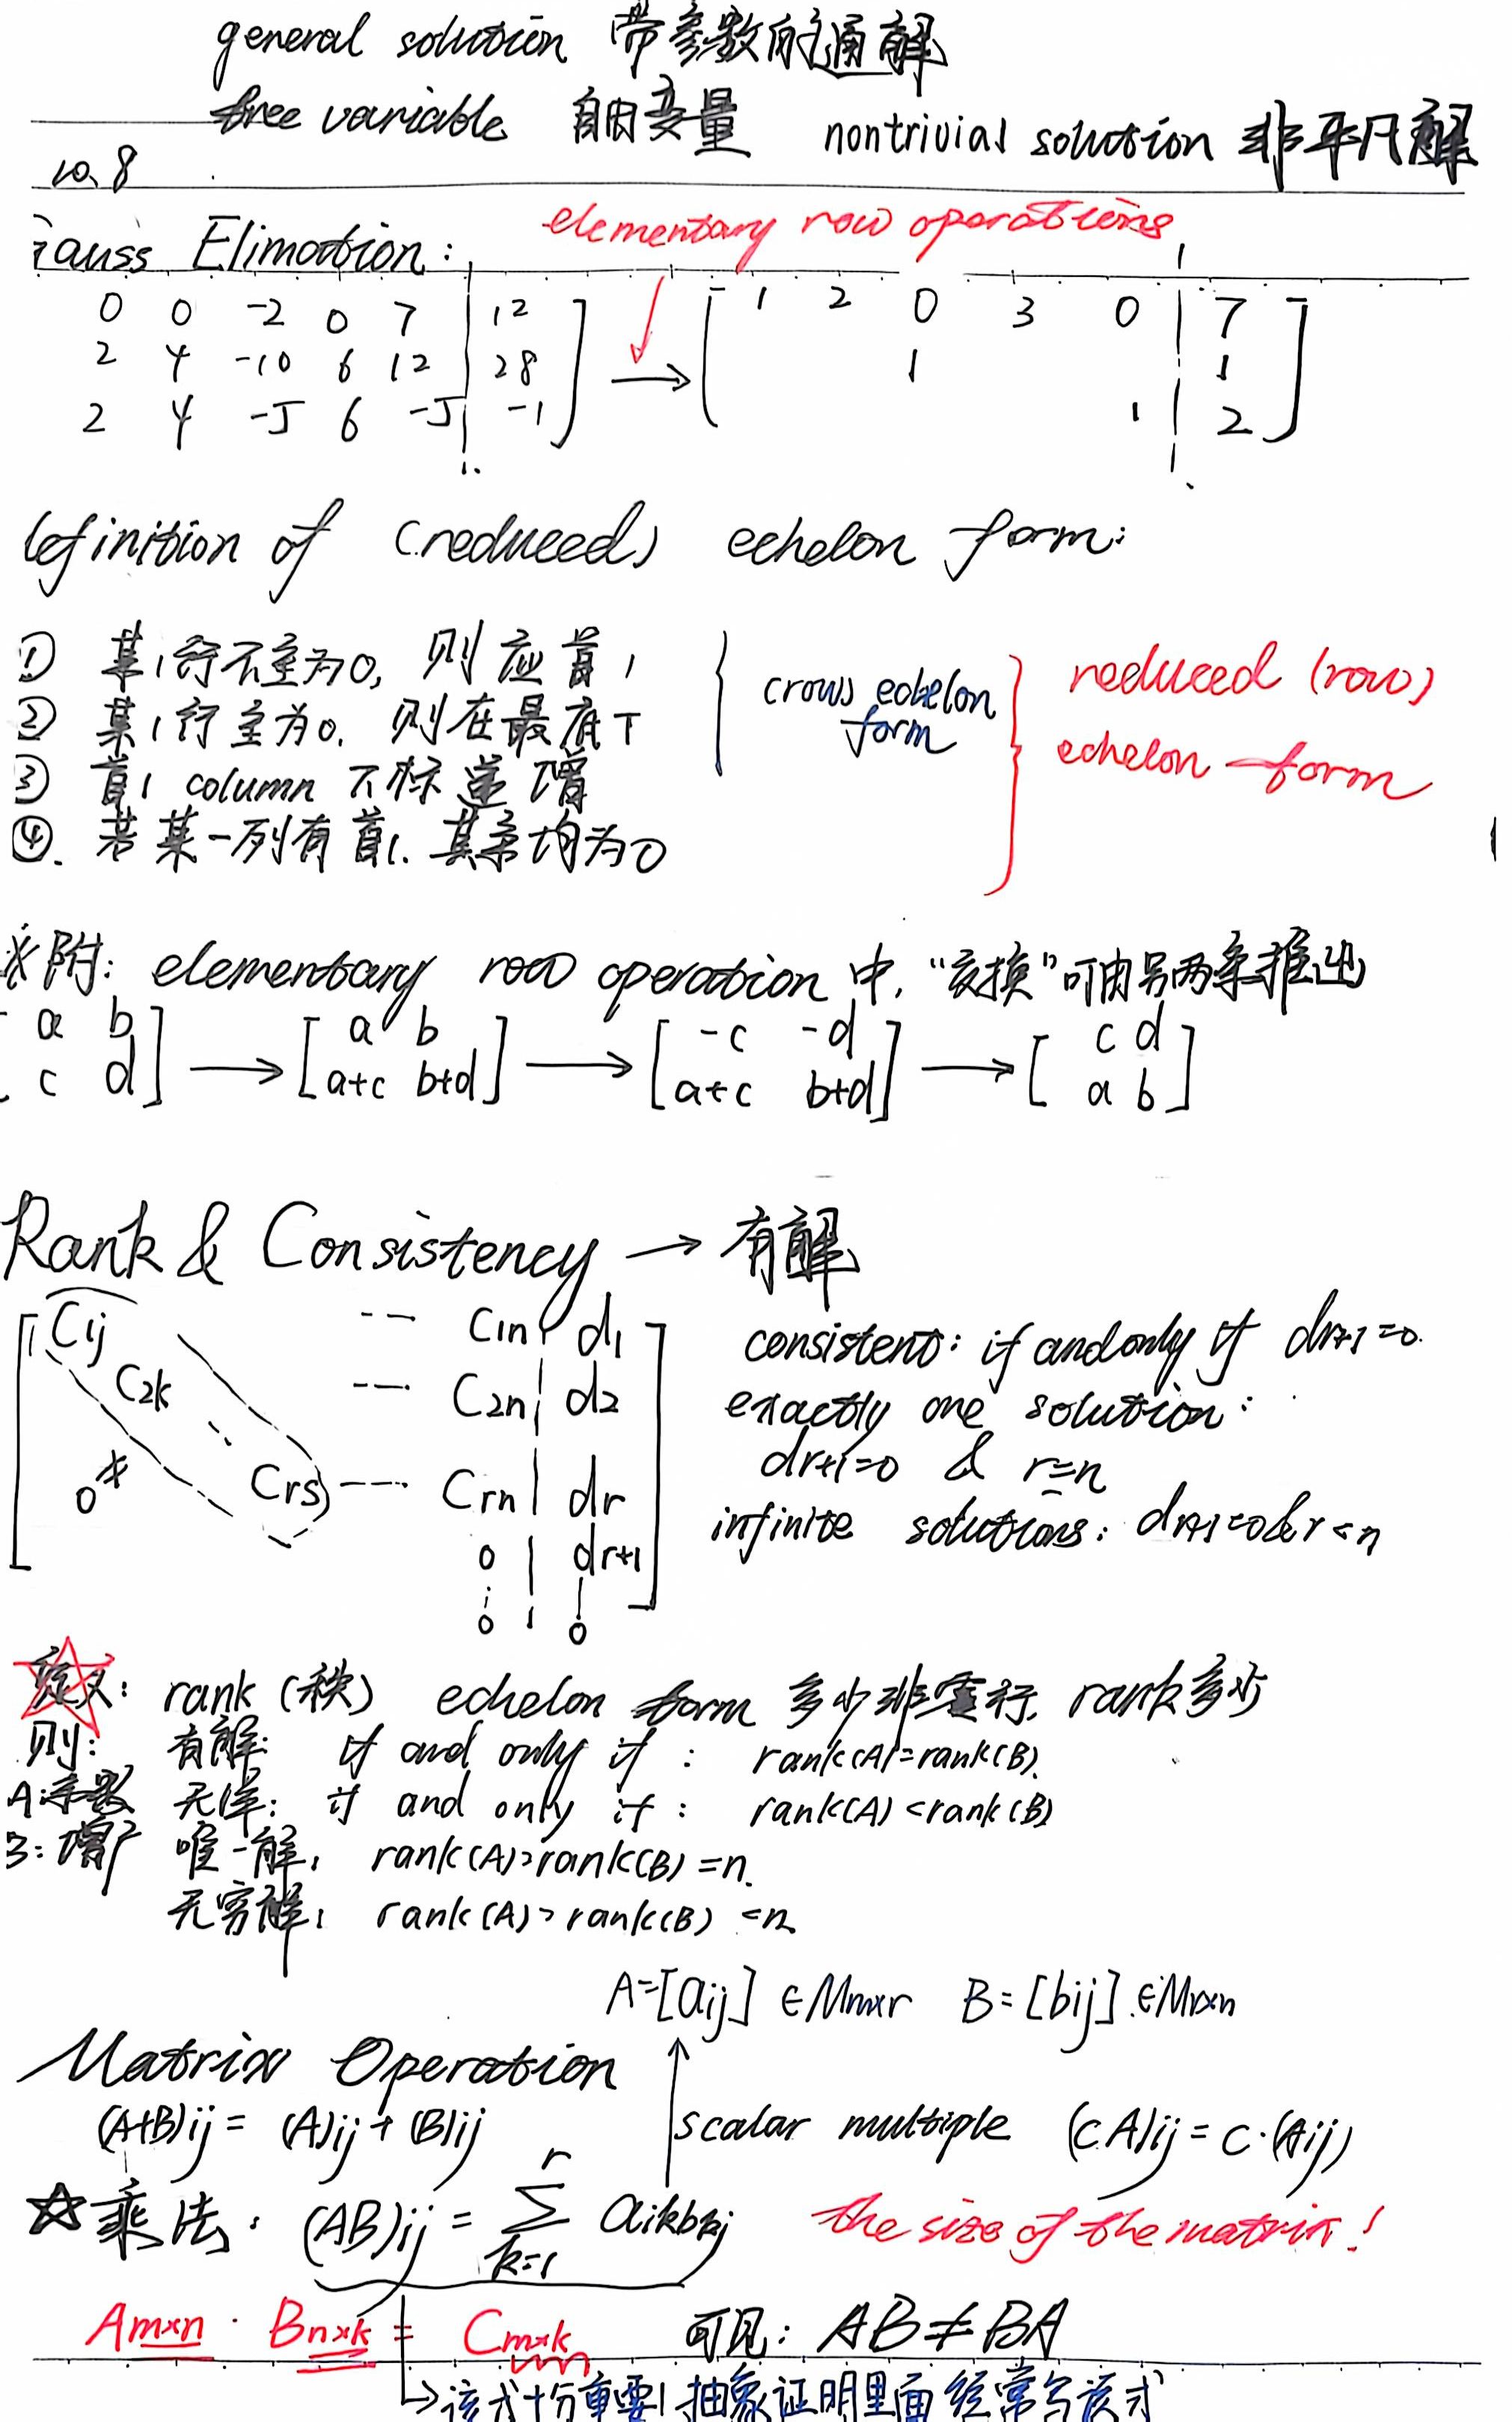 general solution 带参数的通解
free variable 自由变量 nontrivial solution 非平凡解
10.8
Gauss Elimation: elementary row operations
0 0 -2 0 7 | 12 ] → [ 1 2 0 3 0 | 7 ]
2 4 -10 6 12 | 28 1 | 1
2 4 -5 6 -5 | -1 1 | 2
definition of (reduced) echelon form:
① 某1行不全为0, 则应首1
② 某1行全为0, 则在最底下
③ 首1 column 下标递增
④. 若某一列有首1. 其余均为0
(row) echelon form
reduced (row) echelon form
※附: elementary row operation 中, "交换"可由另两条推出
[a b] → [a b] → [-c -d] → [c d]
[c d] [a+c b+d] [a+c b+d] [a b]
Rank & Consistency → 有解
C1j -- C1n | d1
C2k --- C2n | d2
0* Crs --- Crn | dr
0 | dr+1
0 | 0
consistent: if and only if dr+1=0.
exactly one solution:
dr+1=0 & r=n
infinite solutions: dr+1=0 & r<n
定义: rank (秩) echelon form 多少非零行, rank多少
则: 有解: if and only if: rank(A)=rank(B).
A:系数 无解: if and only if: rank(A)<rank(B)
B:增广 唯一解: rank(A)=rank(B)=n.
无穷解: rank(A)=rank(B)<n
A=[aij] ∈Mm×r B=[bij] ∈Mr×n
Matrix Operation
(A+B)ij = (A)ij + (B)ij scalar multiple (cA)ij = c·(Aij)
☆乘法: (AB)ij = r∑k=1 aikbkj the size of the matrix!
Am×n · Bn×k = Cm×k 可见: AB≠BA
↳该式十分重要! 抽象证明里面经常写该式